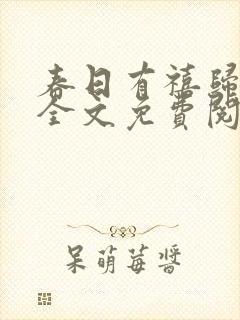 春日有禧歸
全文免費閱
呆萌莓醬